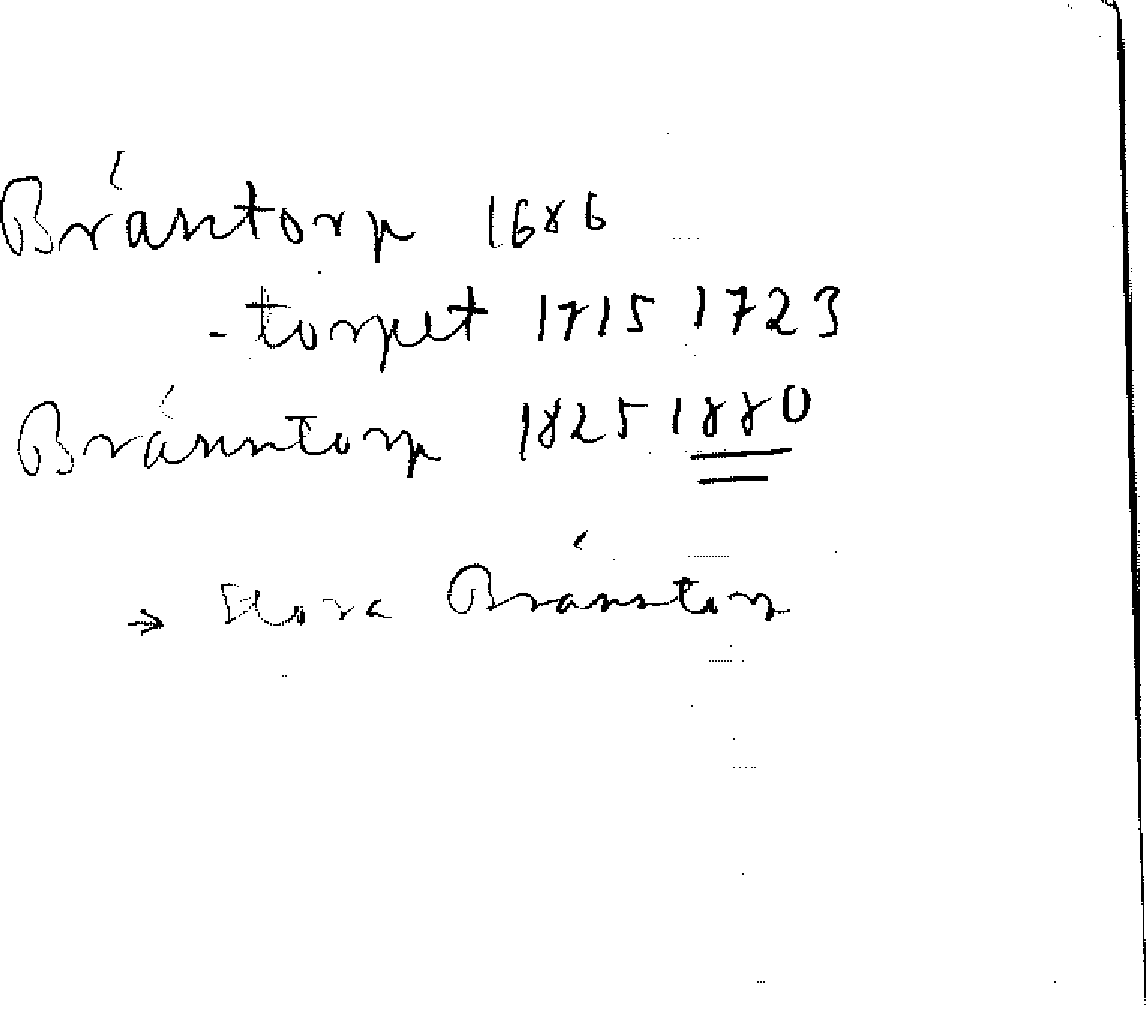 Bräntorp 1686
-torpet 1715 1723
Bränntorp 1825 1880
→ Stora Bränntorp